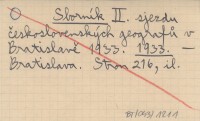 Sborník II. sjezdu
československých geografů v
Bratislavě 1933. 1933. —
Bratislava. Stran 216, il.